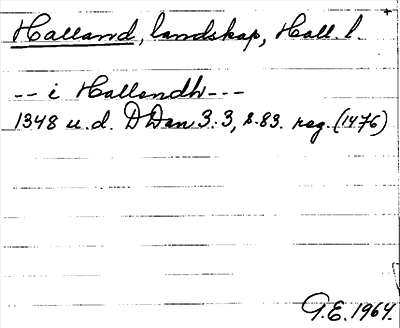 Halland, landskap, Hall. l.
-- i Hallandh ---
1348 u.d. DDan 3:3, s.83. reg. (1476)
G.E. 1964.